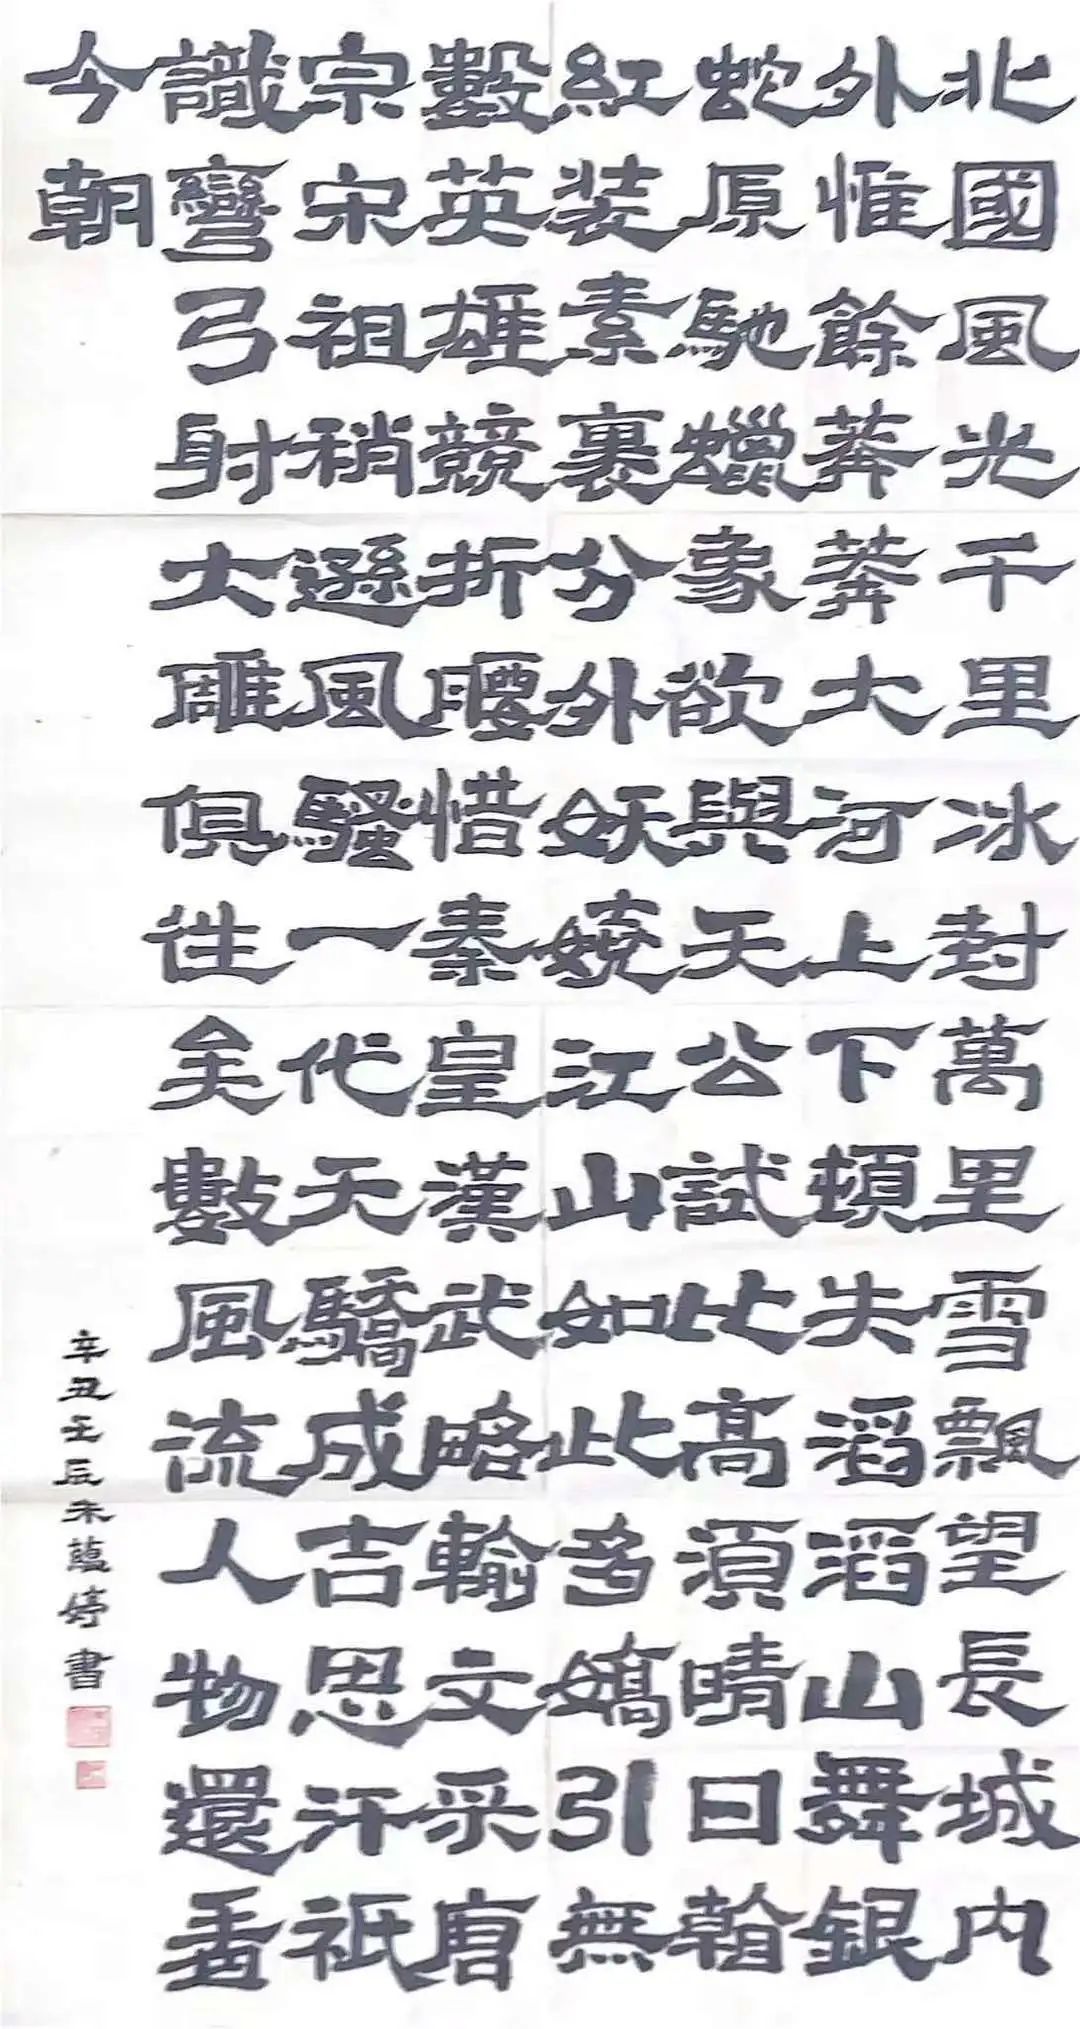 北國風光千里冰封萬里雪飄望長城内
外惟餘莽莽大河上下頓失滔滔山舞銀
蛇原馳蠟象欲與天公試比高須晴日看
紅装素裹分外妖嬈江山如此多嬌引無
數英雄競折腰惜秦皇漢武略輸文采唐
宗宋祖稍遜風騷一代天驕成吉思汗祇
識彎弓射大雕俱往矣數風流人物還看
今朝
辛丑壬辰朱蘊婷書